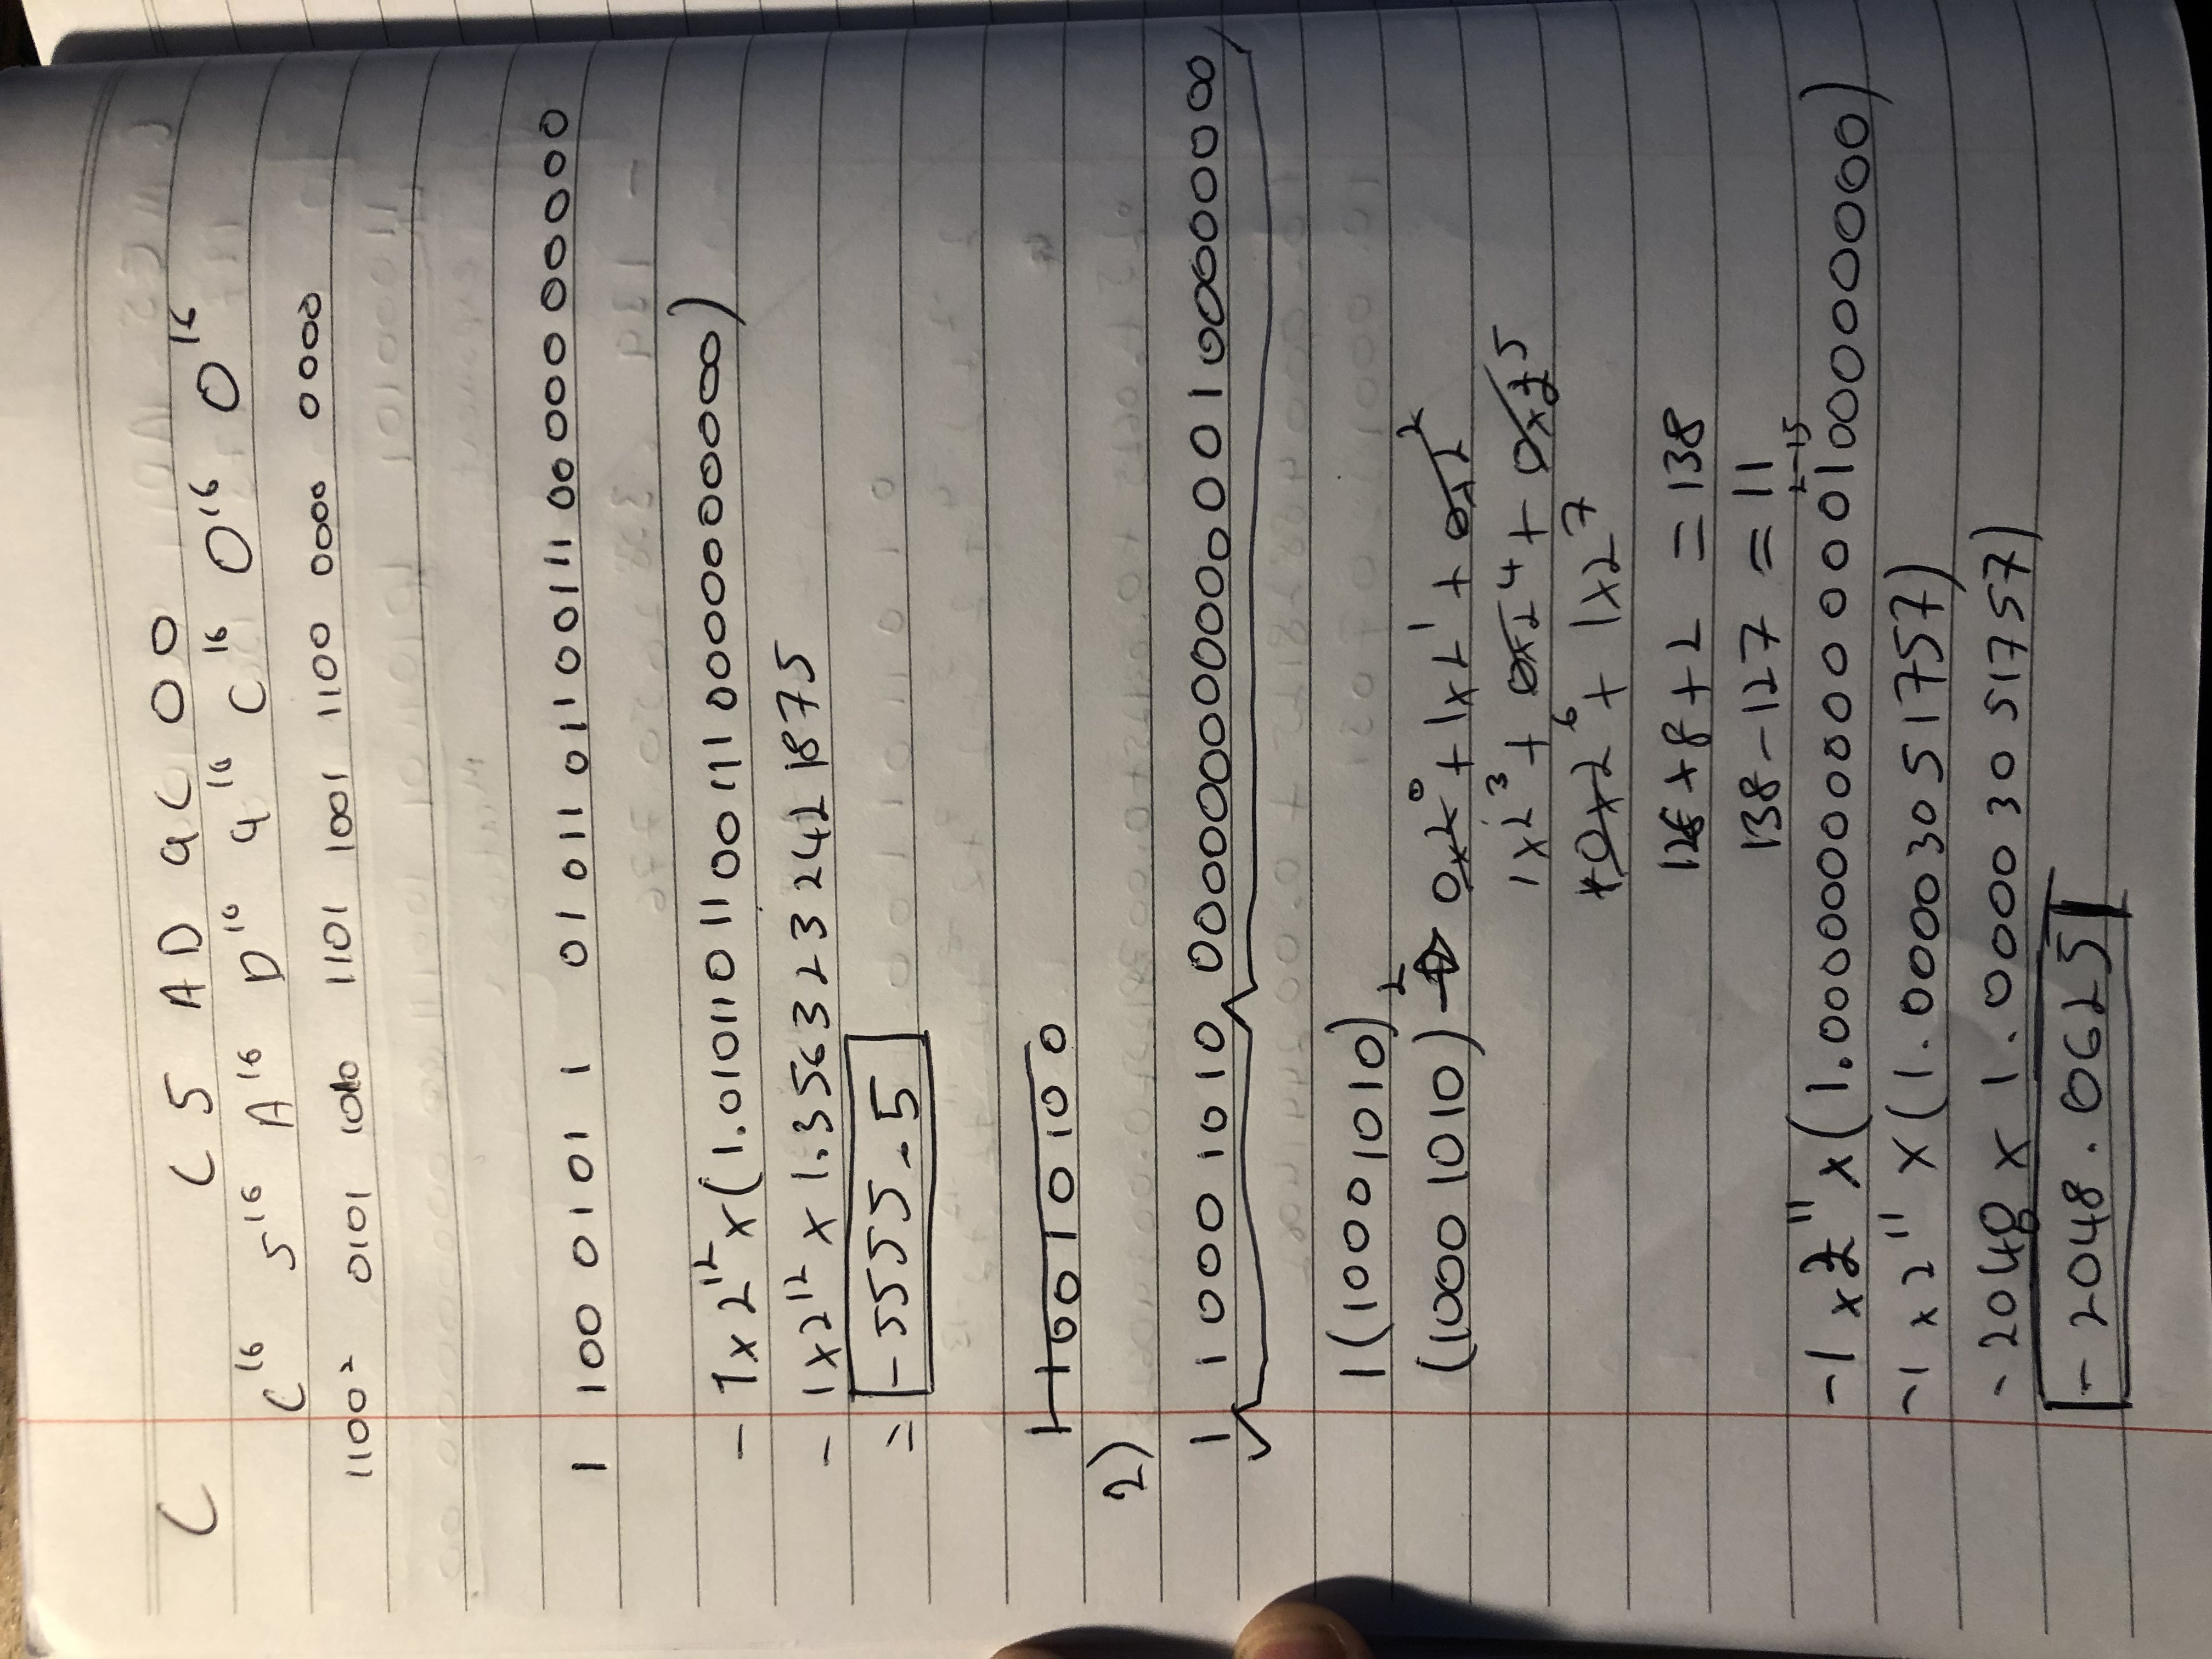 C C5 AD 9C 00
C^16 5^16 A^16 D^16 9^16 C^16 0^16 0^16
1100² 0101 1010 1101 1001 1100 0000 0000
1 100 0101 1 01011011001110000000000
- 1 x 2^12 x (1.01011011001110000000000)
- 1 x 2^12 x 1.3563232421875
= -5555.5
1 10010100
2)
1 10001010 00000000000000100000000
1(10001010)₂
(10001010) → 0x2^0 + 1x2^1 + 0x2^2
1x2^3 + 0x2^4 + 0x2^5
+0x2^6 + 1x2^7
128 + 8 + 2 = 138
138 - 127 = 11
2-15
-1 x 2^11 x (1.00000000000000100000000)
-1 x 2^11 x (1.00003051757)
-2048 x 1.00003051757)
-2048.0625